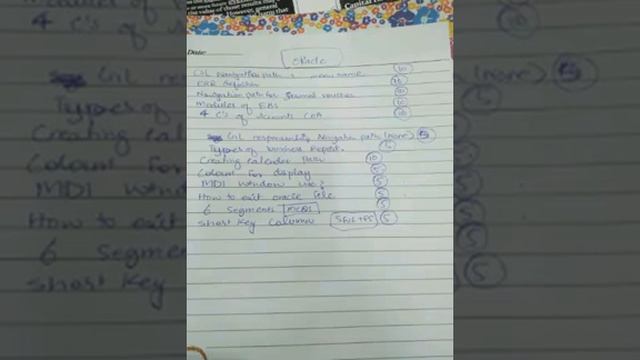 Date:
Oracle
G/L Navigation path & menu name 10
ERR 10
Navigation path for Journal sources 10
Modules of EBS 10
4 C's of Accounts COA 10
G/L responsibility Navigation path (none) 5
Types of business Report. 5
Creating calendar 10
Colour for display 5
MDI window use? 5
How to exit oracle 5
6 segments MCQs 5
Short Key Columns 5